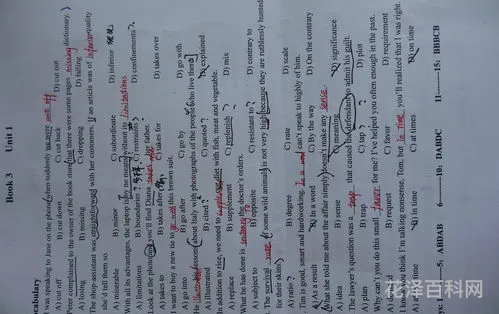 Book 3 Unit 1
Vocabulary
I was speaking to Jane on the phone when suddenly we were cut off
A) cut off B) cut down C) cut back D) cut out
Peter complained to the owner of the book store that there were some pages missing dictionary.)
A) losing B) missing C) dropping D) falling
The shop-assistant was straightforward with her customers. If an article was of inferior quality
she'd tell them so.
A) miserable B) minor C) subordinate D) inferior
With all its advantages, the laptop is by no means without its limitations
A) limitations B) boundaries C) restraints D) confinements
Look at the photo and you'll find Diana takes after father.
A) takes to B) takes after C) takes for D) takes over
I want to buy a new tie to go with this brown suit.
A) go into B) go after C) go by D) go with
He illustrated lesson about Italy with photographs of the people who live there
A) illustrated B) cited C) quoted D) explained
In addition to rice, we need to diet with fish, meat and vegetable.
A) replace B) supplement C) replenish D) mix
What he has done is contrary to the doctor's orders.
A) subject to B) opposite C) resistant to D) contrary to
The survival rate of some wild animals is not very high because they are ruthlessly hunted
for their skins.
A) ratio B) degree C) rate D) scale
Tim is good, smart and hardworking. In a word can't speak to highly of him.
A) As a result B) In a word C) By the way D) On the contrary
What she told me about the affair simply doesn't make any sense.
A) idea B) sense C) meaning D) significance
The lawyer's question was a trap that caused the defendant to admit his guilt.
A) plan B) trap C) tap D) plot
Why can't you do this small favor for me? I've helped you often enough in the past.
B) request C) favor D) requirement
you think I'm talking nonsense, Tom, but in time you'll realized that I was right.
B) in time C) at times D) on time
1——5: AIDAB 6——10: DABDC 11——15: BBBCB
花泽百科网